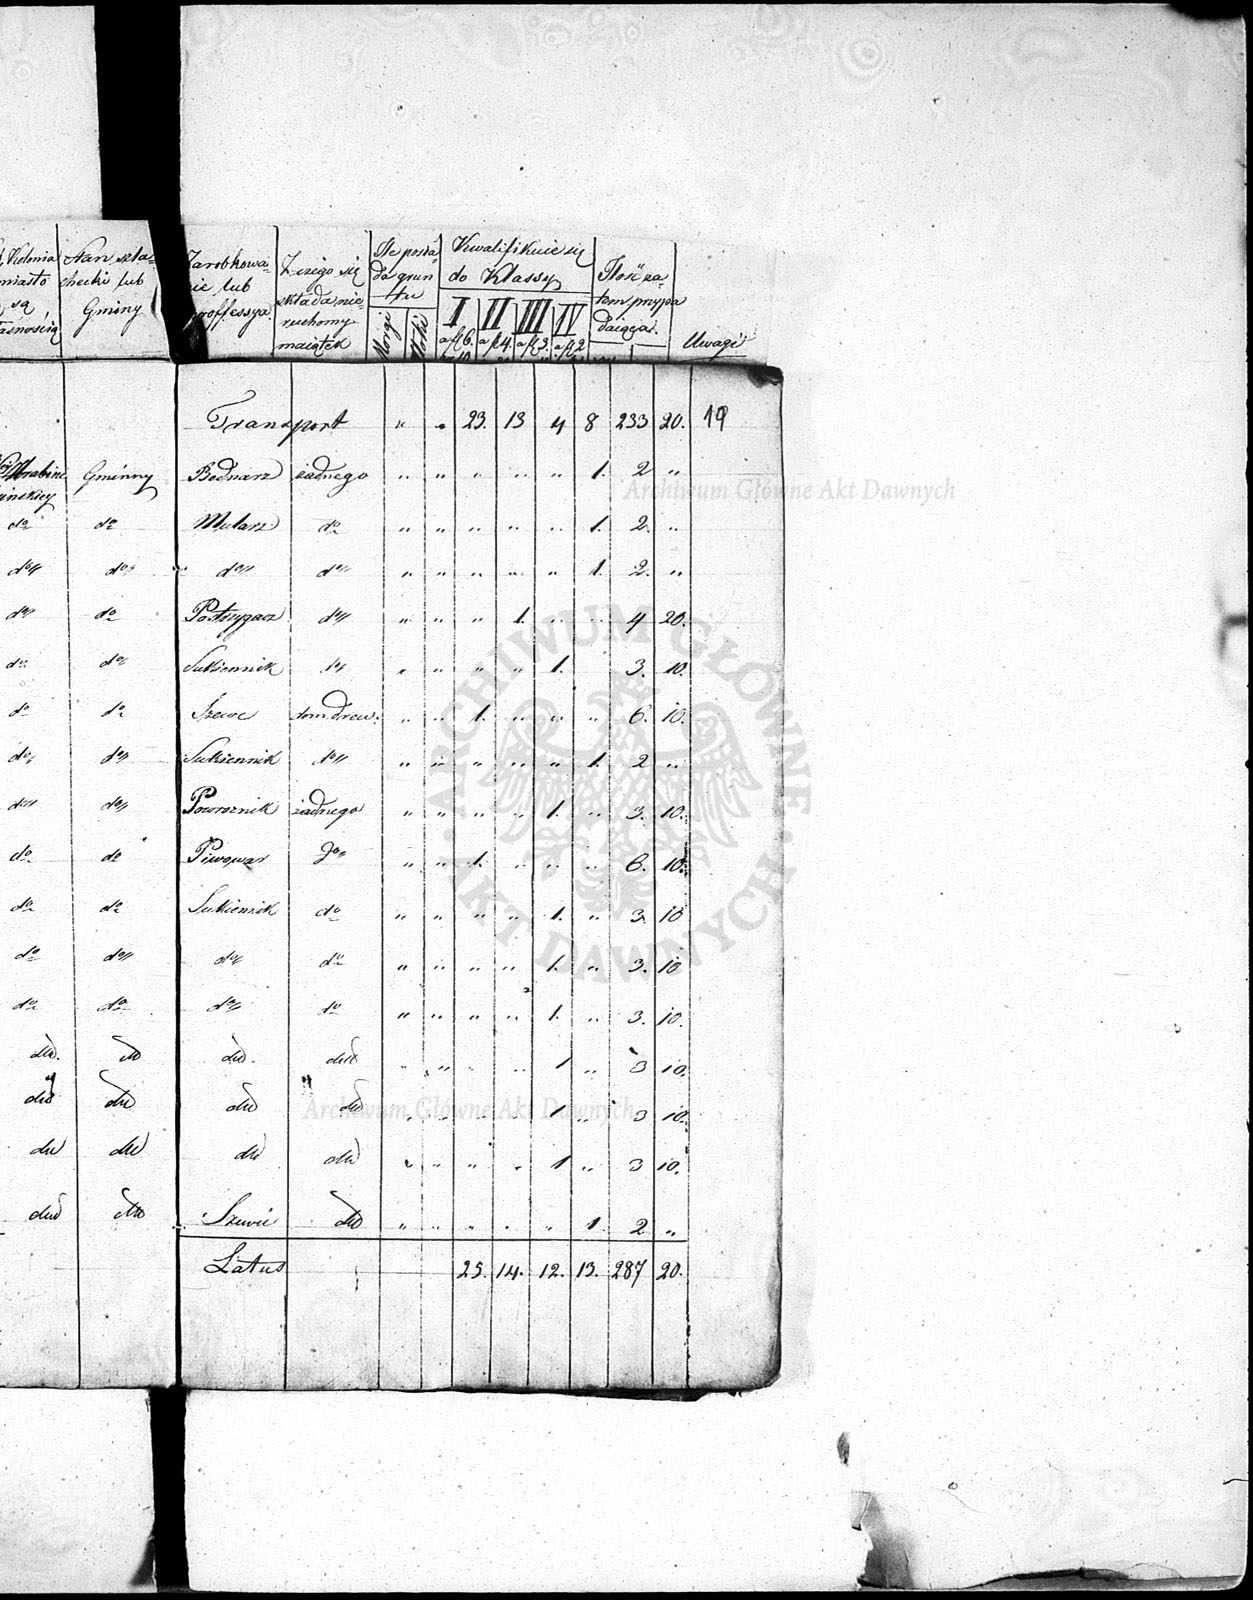 Kolonia
miasto
są
Stan szla-
checki lub
Gminy
Zarobkowa-
nie lub
proffessya.
Z czego się
składa nie-
ruchomy
maiątek
Ile posia-
da grun
tu
Morgi
Kwalifikuie się
do Klassy
I II III IV
a fl 6. a fl 4. a fl 3. a fl 2
Ilość za-
tem przypa
daiąca.
Uwagi
Transport " " 23. 13 4 8 233 20. 19
Gminny Bednarz żadnego " " " " " 1. 2 "
do do Mularz do " " " " " 1. 2. "
do do do do " " " " " 1. 2. "
do do Postrzygacz do " " " 1. " " 4 20.
do do Sukiennik do " " " " 1. 3. 10.
do do Szewc dom drew. " " 1. " " " 6. 10.
do do Sukiennik do " " " " " 1. 2 "
do do Powroznik żadnego " " " " 1. " 3. 10.
do do Piwowar do " " 1. " " " 6. 10.
do do Sukiennik do " " " " 1. " 3. 10
do do do do " " " " 1. " 3. 10
do do do do " " " " 1. " 3. 10.
dtto. dtto dtto. dtto " " " " 1 " 3 10.
dtto dtto dtto dtto " " " " 1 " 3 10.
dtto dtto dtto dtto " " " " 1 " 3 10.
dtto dtto Szewc dtto " " " " " 1. 2 "
Latus 25. 14. 12. 13. 287 20.
Archiwum Główne Akt Dawnych
ARCHIWUM GŁÓWNE AKT DAWNYCH
Archiwum Główne Akt Dawnych